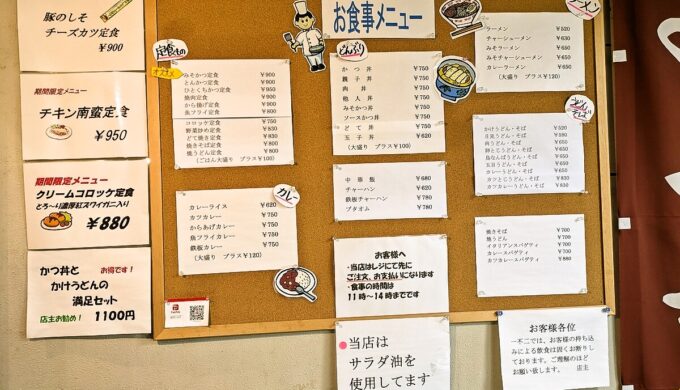 豚のしそ
チーズカツ定食
￥900
期間限定メニュー
チキン南蛮定食
￥950
期間限定メニュー
クリームコロッケ定食
とろ〜り濃厚紅ズワイガニ入り
￥880
かつ丼と お得です！
かけうどんの
満足セット
店主お勧め！ 1100円
お食事メニュー
定食もの
オススメ
みそかつ定食 ￥900
とんかつ定食 ￥900
ひとくちかつ定食 ￥950
焼肉定食 ￥900
から揚げ定食 ￥900
魚フライ定食 ￥800
コロッケ定食 ￥750
野菜炒め定食 ￥830
どて焼き定食 ￥830
焼きそば定食 ￥800
焼うどん定食 ￥800
（ごはん大盛り プラス￥100）
カレー
カレーライス ￥620
カツカレー ￥750
からあげカレー ￥750
魚フライカレー ￥750
鉄板カレー ￥750
（大盛り プラス￥120）
どんぶり
かつ丼 ￥750
親子丼 ￥750
肉丼 ￥750
他人丼 ￥750
みそかつ丼 ￥750
ソースかつ丼 ￥750
どて丼 ￥750
玉子丼 ￥620
（大盛り プラス ￥100）
中華飯 ￥680
チャーハン ￥620
鉄板チャーハン ￥780
ブタオム ￥780
お客様へ
・当店はレジにて先に
ご注文、お支払いになります
・食事の時間は
11時〜14時までです
当店は
サラダ油を
使用してます
ラーメン ￥520
チャーシューメン ￥630
みそラーメン ￥630
みそチャーシューメン ￥680
カレーラーメン ￥650
（大盛り プラス￥100）
かけうどん・そば ￥520
月見うどん・そば ￥580
肉うどん・そば
卵とじうどん・そば
鳥なんばうどん・そば
五目うどん・そば
カレーうどん・そば
カツとじうどん・そば
カツカレーうどん・そば
焼きそば ￥700
焼うどん ￥700
イタリアンスパゲティ ￥700
カレースパゲティ ￥700
カツカレースパゲティ ￥880
お客様各位
一不二では、お客様の持ち込
みによる飲食は固くお断りし
ております。ご理解のほど
お願い致します。 店主